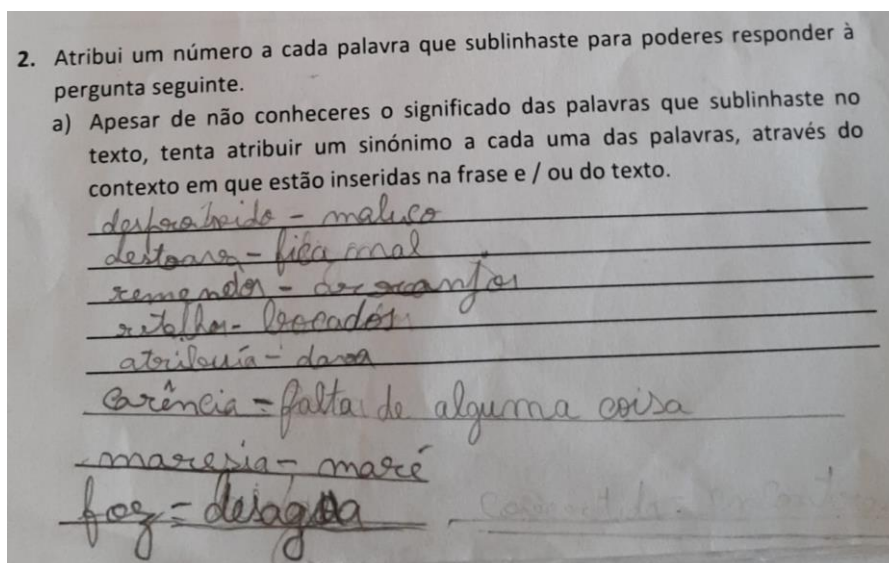 2. Atribui um número a cada palavra que sublinhaste para poderes responder à
pergunta seguinte.
a) Apesar de não conheceres o significado das palavras que sublinhaste no
texto, tenta atribuir um sinónimo a cada uma das palavras, através do
contexto em que estão inseridas na frase e / ou do texto.
- maluco
destoava - fica mal
remendos - arranjos
retalhos - bocados
atribuía - dava
Carência = falta de alguma coisa
maresia - maré
foz = deságua